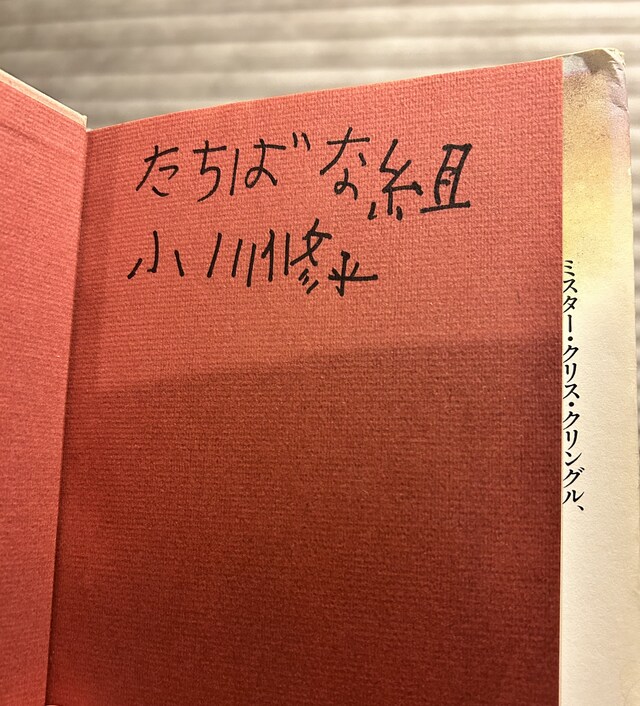 たちばな組
小川修平
ミスター・クリス・クリングル、